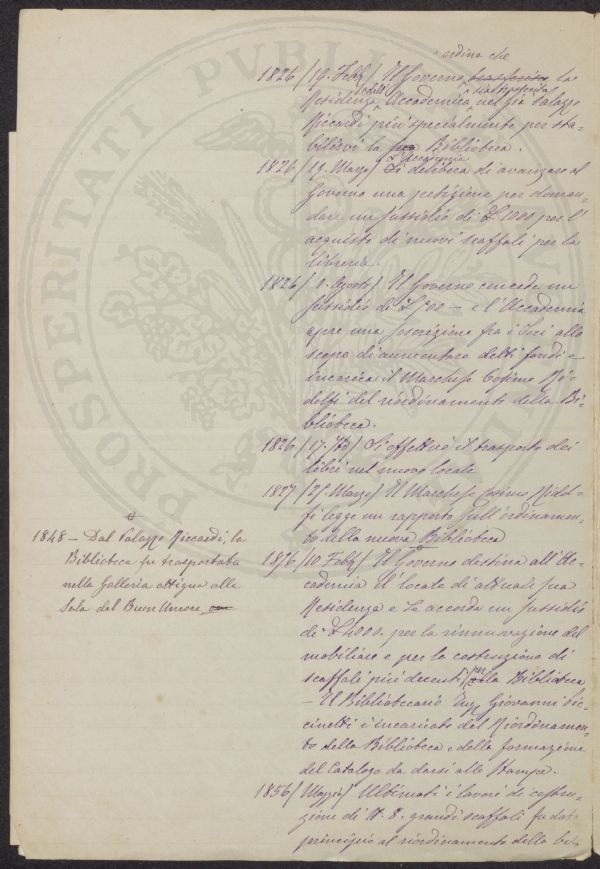 PROSPERITATI PVBLI
ordina che
1826/19. Febb/ Il Governo trasferisce la
Residenza dell' Accademica nel già Palazzo
sia trasferita
Riccardi più specialmente per sta-
bilirvi la sua Biblioteca.
L'Accademia
1826/19. Marzo/ Si delibera di avanzare al
Governo una petizione per doman-
dare un sussidio di £ 1000 per l'
acquisto di nuovi scaffali per la
libreria.
1826/1. Agosto/ Il Governo concede un
sussidio di £ 500 — e l'Accademia
apre una soscrizione fra i Soci allo
scopo di aumentare detti fondi e
incarica il Marchese Cosimo Ri-
dolfi del riordinamento della Bi-
blioteca.
1826/17. Si effettuò il trasporto dei
libri nel nuovo locale
1827/25. Marzo/ Il Marchese Cosimo Ridol-
fi legge un rapporto sull'ordinamen-
to della nuova Biblioteca
1848 — Dal Palazzo Riccardi, la
Biblioteca fu trasportata
nella Galleria attigua alla
Sala del Buon Umore
1876/10 Febb/ Il Governo destina all'Ac-
cademia il locale di attuale sua
Residenza e le accorda un sussidio
di £ 4000. per la rinnuovazione del
mobiliare e per la costruzione di
scaffali più decenti per la Biblioteca
— Il Bibliotecario Giovanni
è incaricato del Riordinamen-
to della Biblioteca e della formazione
del Catalogo da darsi alle Stampe.
1856/ Maggio/ Ultimati i lavori di costru-
zione di N. 8. grandi scaffali fu dato
principio al riordinamento della bib